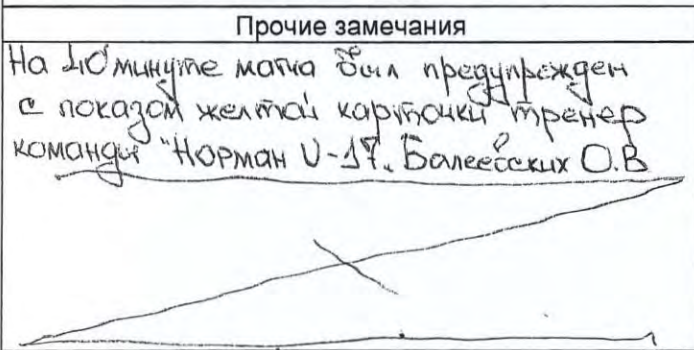 Прочие замечания
На 40 минуте матча был предупрежден
с показом желтой карточки тренер
команды "Норман U-17" Балеевских О.В